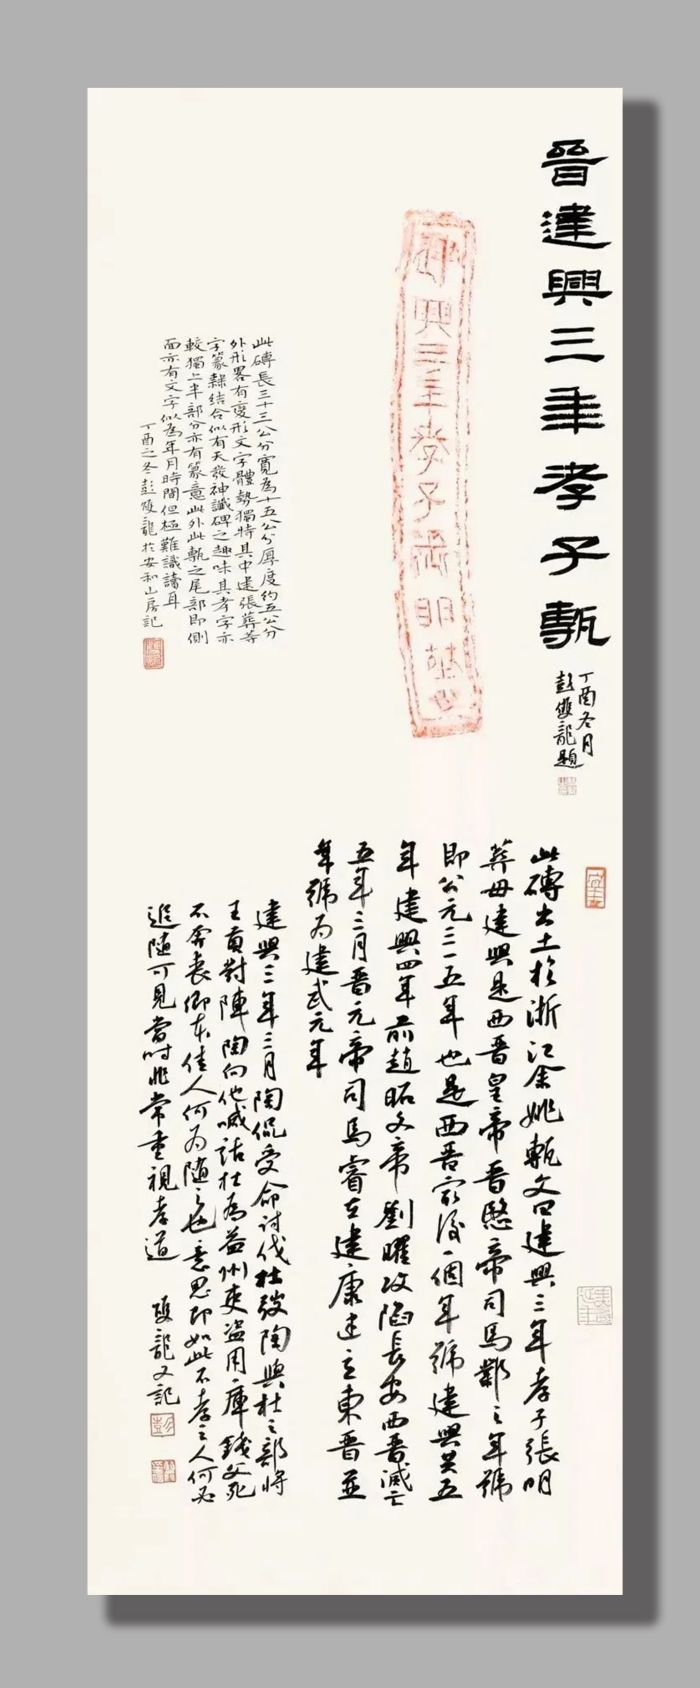 晉建興三年孝子甎
丁酉冬月
彭雙龍題
建興三年孝子張明葬母
此磚長三十三公分寬為十五公分厚度約五公分
外形畧有變形文字體勢獨特其中建張葬等
字篆隸結合似有天發神讖碑之趣味其孝字亦
較獨上半部分亦有篆意此外此甎之尾部即側
面亦有文字似為年月時間但極難識讀耳
丁酉之冬彭雙龍於安和山房記
此磚出土於浙江余姚甎文曰建興三年孝子張明
葬母建興是西晉皇帝晉愍帝司馬鄴之年號
即公元三一五年也是西晉最後一個年號建興共五
年建興四年前趙昭文帝劉曜攻陷長安西晉滅亡
五年三月晉元帝司馬睿在建康建立東晉並
年號為建武元年
建興三年三月陶侃受命討伐杜弢陶與杜之部將
王貢對陣陶向他喊話杜為益州吏盜用庫錢父死
不奔喪卿本佳人何為隨之也意思即如此不孝之人何必
追隨可見當時非常重視孝道
雙龍又記